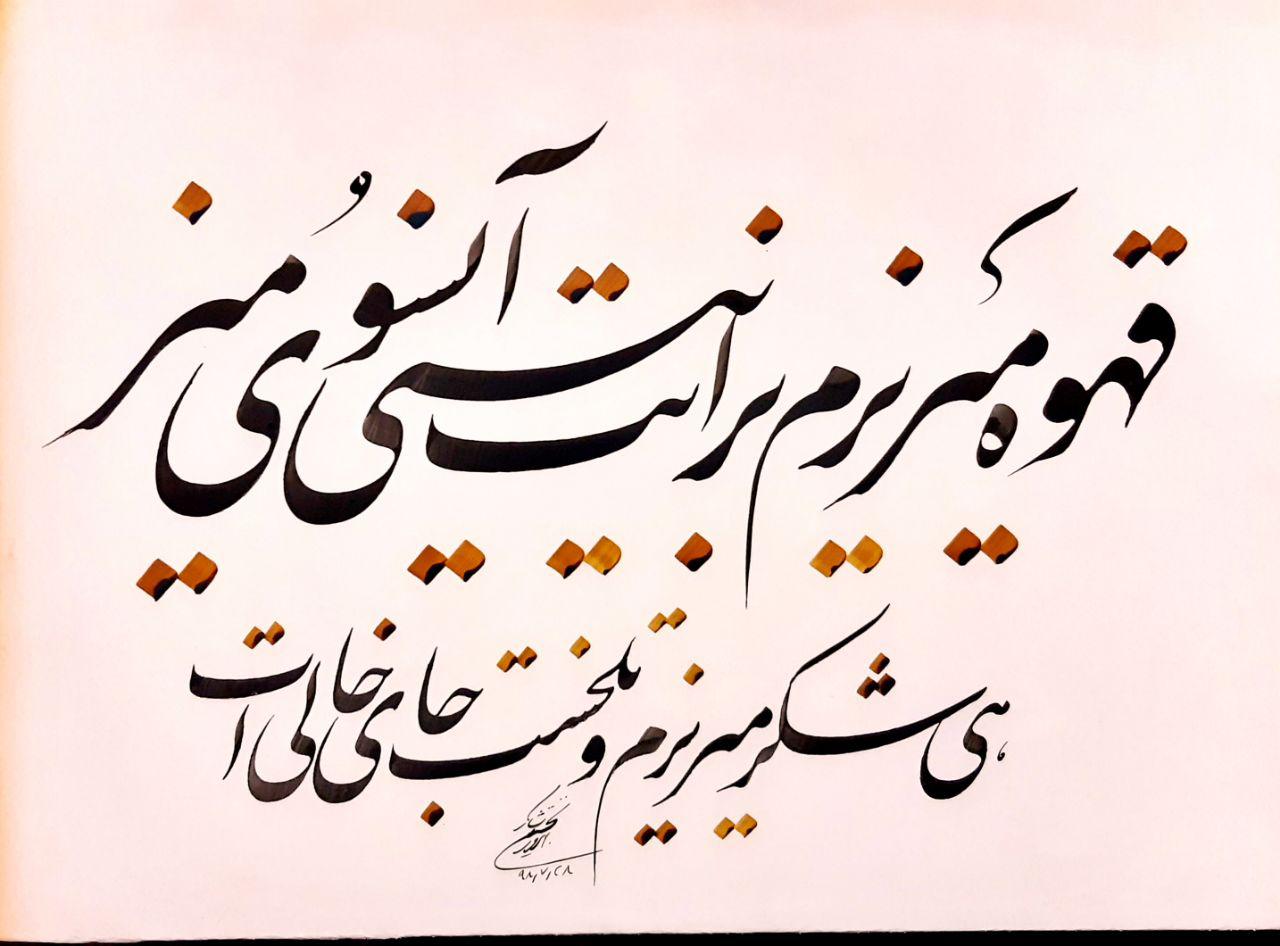 قهوه میریزم برایت نیستی آنسُوی میز
هی شکر میریزم و تلخست جای خالی ات
۹۸٫۷٫۲۸